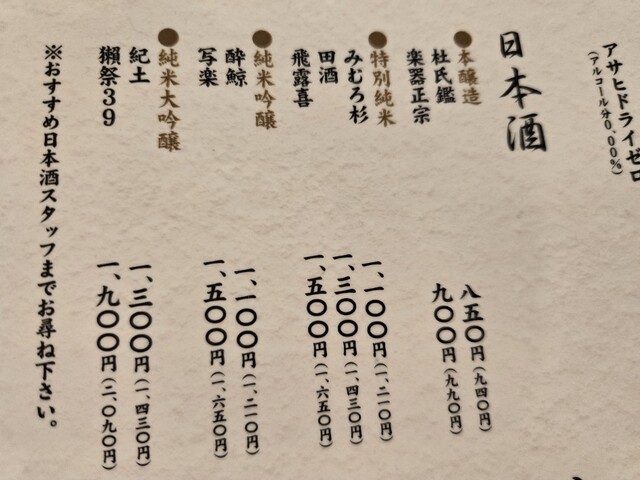 アサヒドライゼロ
(アルコール分0.00%)
日本酒
●本醸造
杜氏鑑 八五〇円(九四〇円)
楽器正宗 九〇〇円(九九〇円)
●特別純米
みむろ杉 一、一〇〇円(一、二一〇円)
田酒 一、三〇〇円(一、四三〇円)
飛露喜 一、五〇〇円(一、六五〇円)
●純米吟醸
酔鯨 一、一〇〇円(一、二一〇円)
写楽 一、五〇〇円(一、六五〇円)
●純米大吟醸
紀土 一、三〇〇円(一、四三〇円)
獺祭39 一、九〇〇円(二、〇九〇円)
※おすすめ日本酒スタッフまでお尋ね下さい。